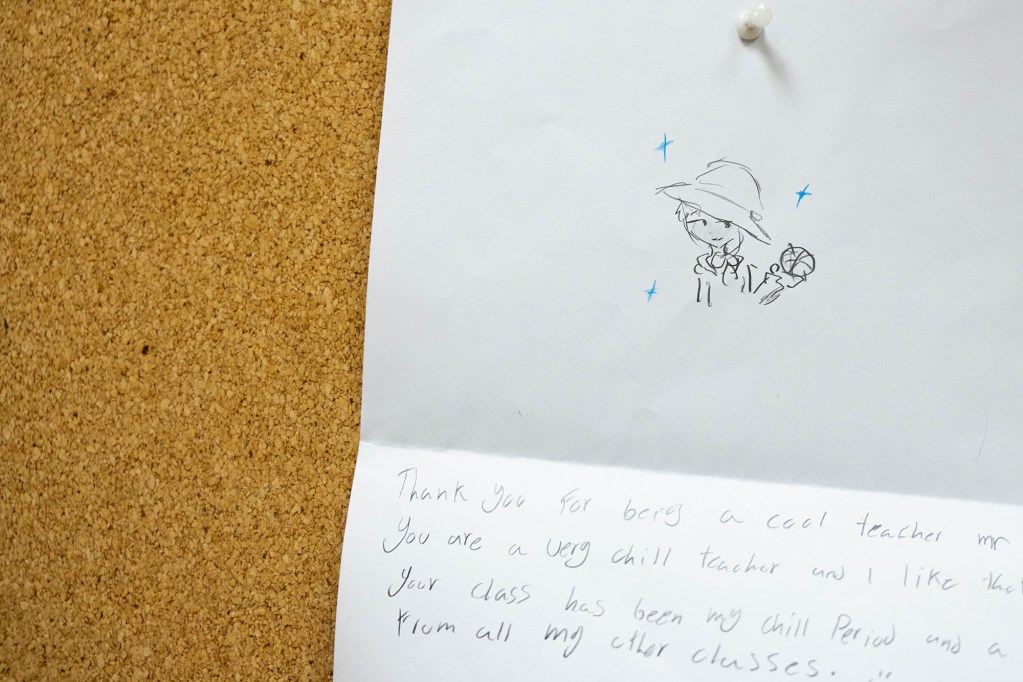 Thank you For being a cool teacher mr
You are a very chill teacher and I like that
Your class has been my chill Period and a
From all my other classes. :)